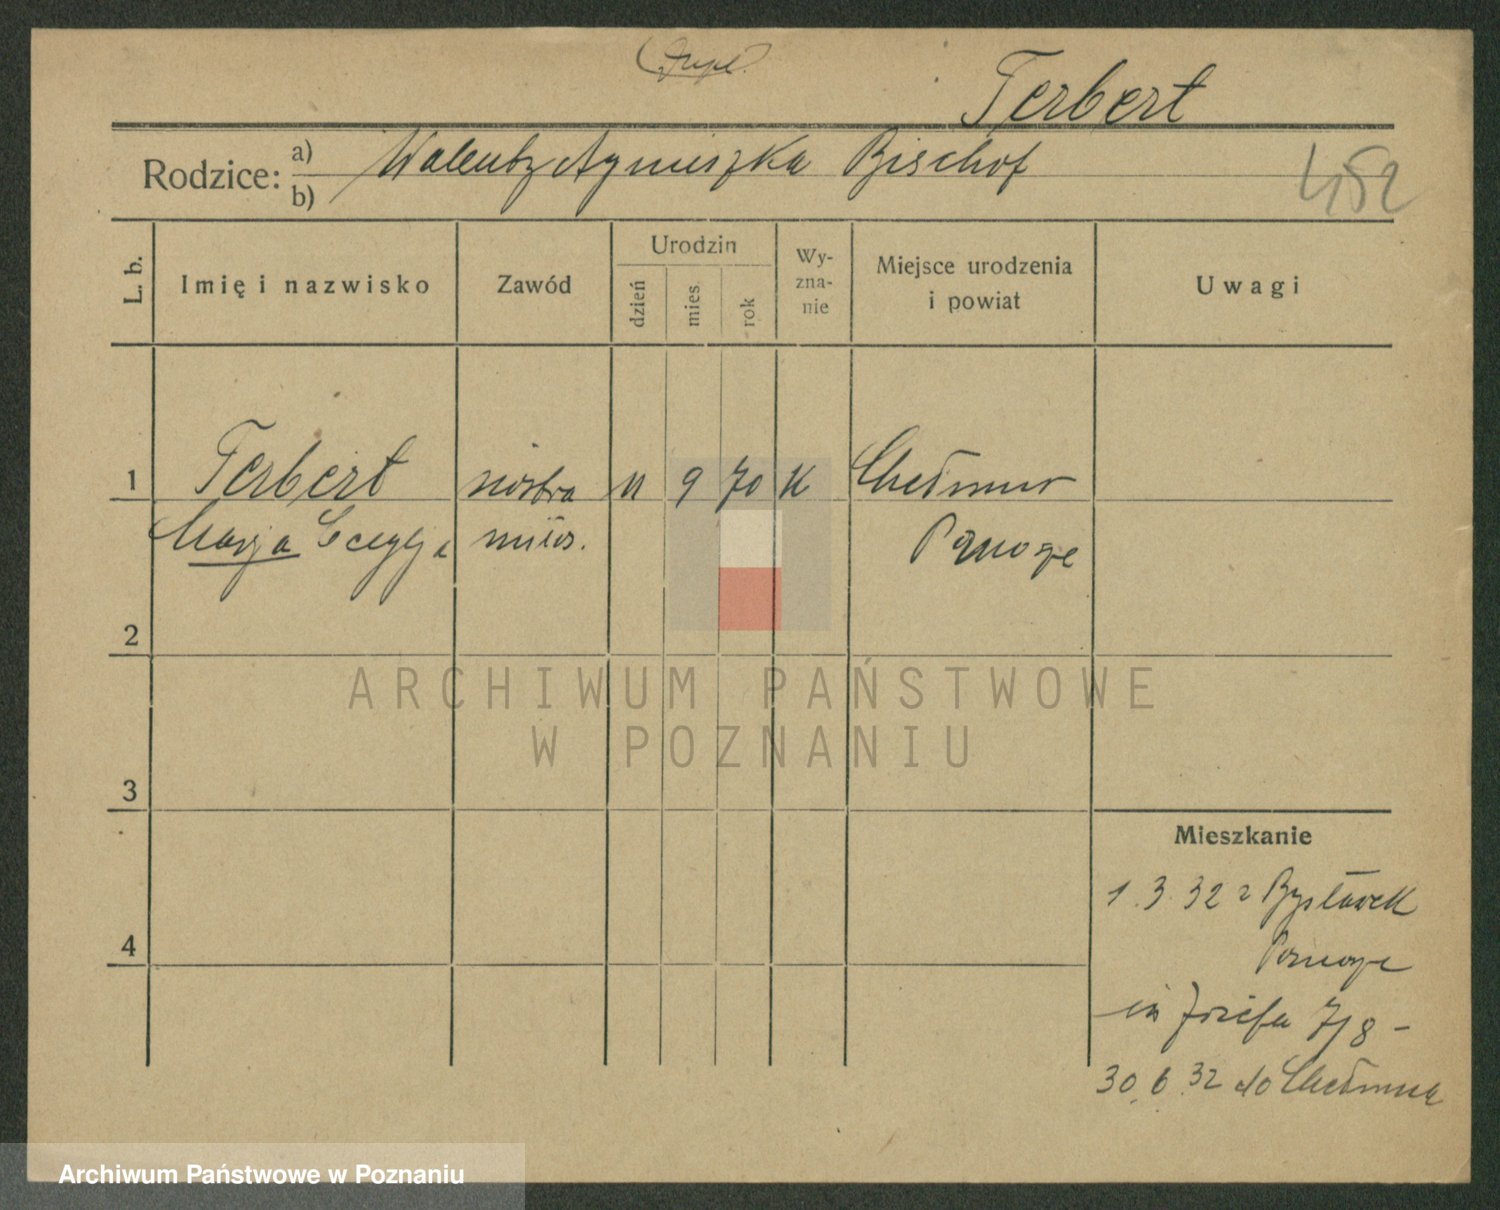 Terbert
Rodzice: a) Walenty Agnieszka Bischof
b)
452
L. b.
Imię i nazwisko
Zawód
Urodzin
dzień
mies.
rok
Wy-
zna-
nie
Miejsce urodzenia
i powiat
Uwagi
1 Terbert siostra 11 9 70 K Chełmno
Marja Cecylja miłos. Pomorze
2
3
4
Mieszkanie
1.3.32 z Bysławek
Pomorze
św Józefa 7/8 -
30.6.32 do Chełmna
ARCHIWUM PAŃSTWOWE
W POZNANIU
Archiwum Państwowe w Poznaniu